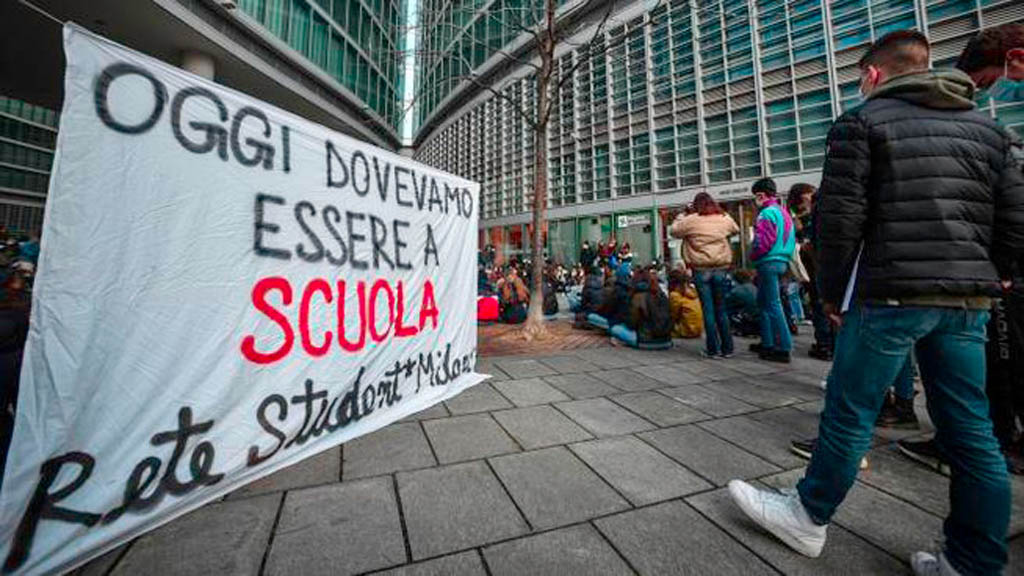 OGGI DOVEVAMO
ESSERE A
SCUOLA
Rete Student* Milano